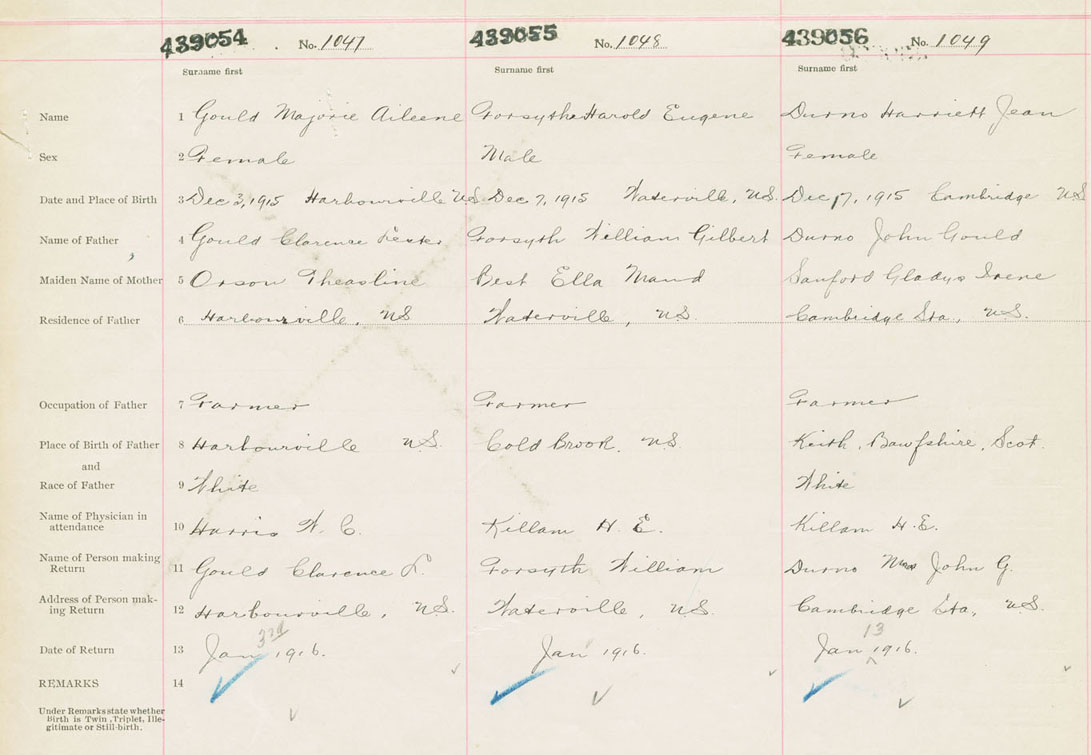 439054 No. 1047 439055 No. 1048 439056 No. 1049
Surname first Surname first Surname first
Name 1 Gould Majorie Aileene Forsythe Harold Eugene Durno Harriett Jean
Sex 2 Female Male Female
Date and Place of Birth 3 Dec 3, 1915 Harbourville N.S. Dec 7, 1915 Waterville, N.S. Dec 17, 1915 Cambridge N.S
Name of Father 4 Gould Clarence Forsyth William Gilbert Durno John Gould
Maiden Name of Mother 5 Orson Theasline Best Ella Maud Sanford Gladys Irene
Residence of Father 6 Harbourville, NS Waterville, N.S. Cambridge Sta., N.S.
Occupation of Father 7 Farmer Farmer Farmer
Place of Birth of Father 8 Harbourville N.S. Cold Brook, N.S. Keith, Bawfshire, Scot.
and
Race of Father 9 White White
Name of Physician in
attendance 10 Harris W. C. Killam H. E. Killam H.E.
Name of Person making
Return 11 Gould Clarence L. Forsyth William Durno Mrs John G.
Address of Person mak-
ing Return 12 Harbourville, N.S. Waterville, N.S. Cambridge Sta, N.S.
Date of Return 13 Jan 3rd 1916. Jan 1916. Jan 13 1916.
REMARKS 14
Under Remarks state whether
Birth is Twin, Triplet, Ille-
gitimate or Still-birth.